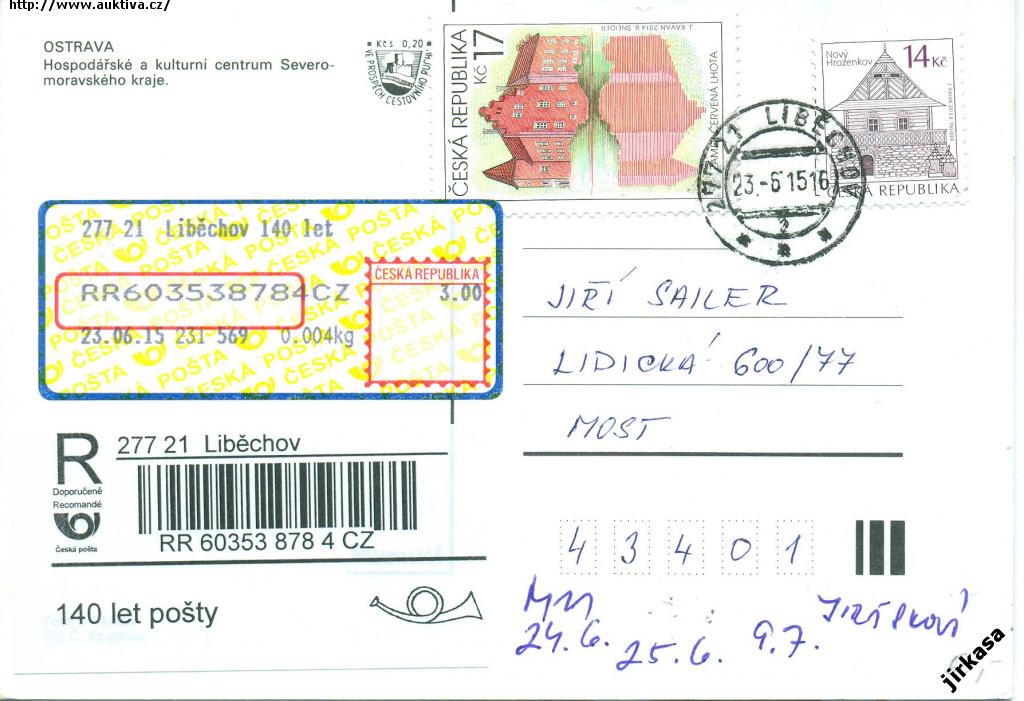 http://www.auktiva.cz/
OSTRAVA
Hospodářské a kulturní centrum Severo-
moravského kraje.
Kčs 0,20
VE PROSPĚCH CESTOVNÍHO RUCHU
ČESKÁ REPUBLIKA
Kč 17
J. KAVAN 2014 B. ŠNEIDER
ČERVENÁ LHOTA
Nový
Hrozenkov
14 Kč
ČESKÁ REPUBLIKA
277 21 LIBĚCHOV
23.-6 15 16
2
277 21 Liběchov 140 let
RR603538784CZ
23.06.15 231 569 0.004kg
ČESKÁ REPUBLIKA
3.00
ČESKÁ POŠTA
JIŘÍ SAILER
LIDICKÁ 600/77
MOST
R
Doporučeně
Recomandé
Česká pošta
277 21 Liběchov
RR 60353 878 4 CZ
140 let pošty
4 3 4 0 1
24.6.
25.6.
9.7.
jirkasa